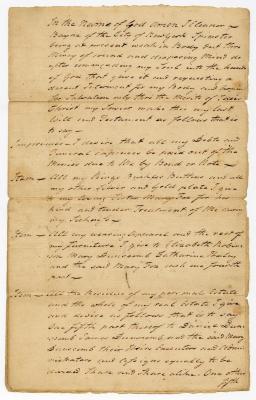 In the Name of God Amen I Eleanor
Bayne of the City of New York Spinster
being at present weak in Body but thro
Being of sound and disposing Mind do
after recommending my Soul into the hands
of God that gave it and requesting a
decent Interment for my Body and hoping
for Salvation only thro the Merits of Jesus
Christ my Savior make this my last
Will and Testament as follows that is
to say —
Imprimis — I desire that all my Debts and
Funeral Expences be paid out of the
Monies due to Me by Bond or Note —
Item — All my Rings Buckles Buttons and all
my other Silver and Gold plate I give
to my loving Sister Mary Fox for her
kind and tender Treatment of Me during
my Sickness —
Item — All my wearing Apparel and the rest of
my furniture I give to Elizabeth
Mary Duncomb Catharine
and the said Mary Fox each one fourth
part —
Item — All the Residue of my personal Estate
and the whole of my real Estate I give
and devise as follows that is to say
One fifth part thereof to Daniel Dun
comb James Duncomb and the said Mary
Duncomb their Heirs Executors and Admi
nistrators and Assigns equally to be
divided Share and Share alike. One other
fifth